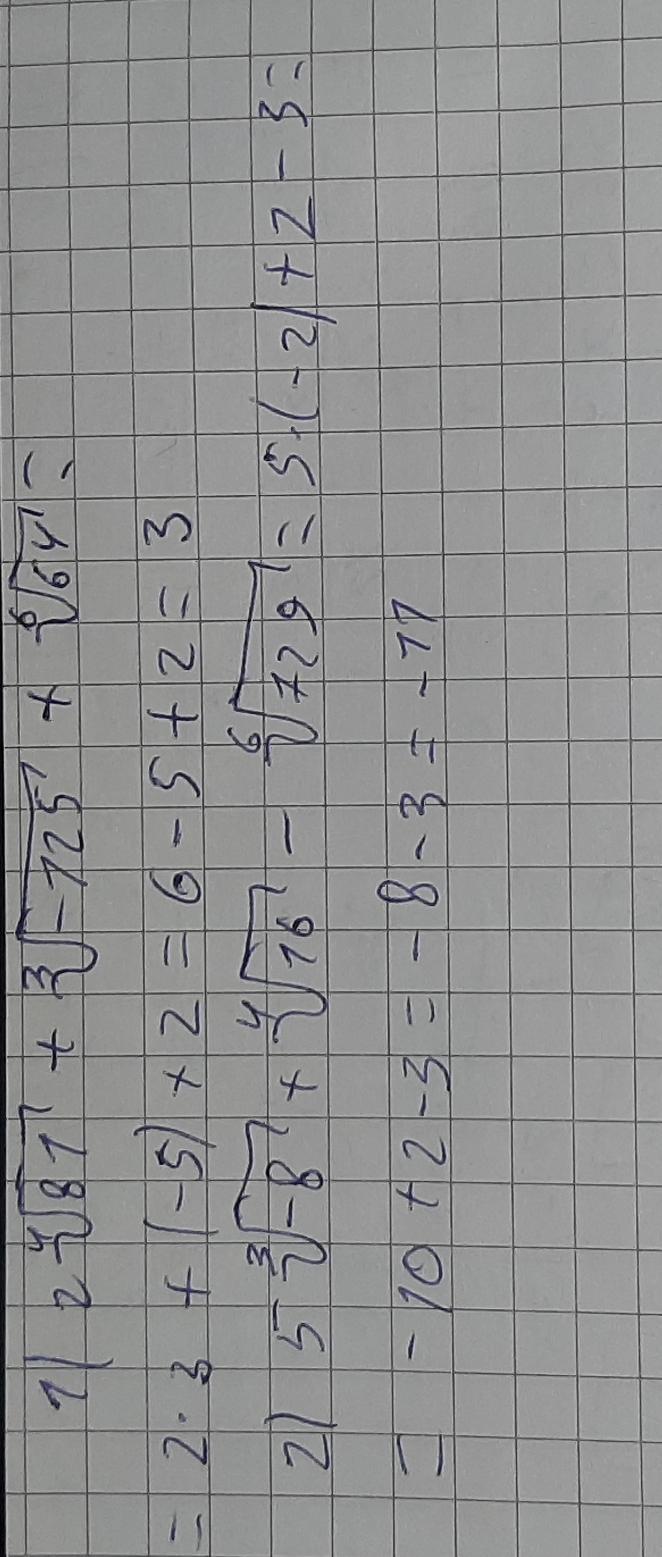 1) 2∜81 + ∛-125 + ⁶√64 =
= 2·3 + (-5) + 2 = 6 - 5 + 2 = 3
2) 5∛-8 + ∜16 - ⁶√729 = 5·(-2) + 2 - 3 =
= -10 + 2 - 3 = -8 - 3 = -11